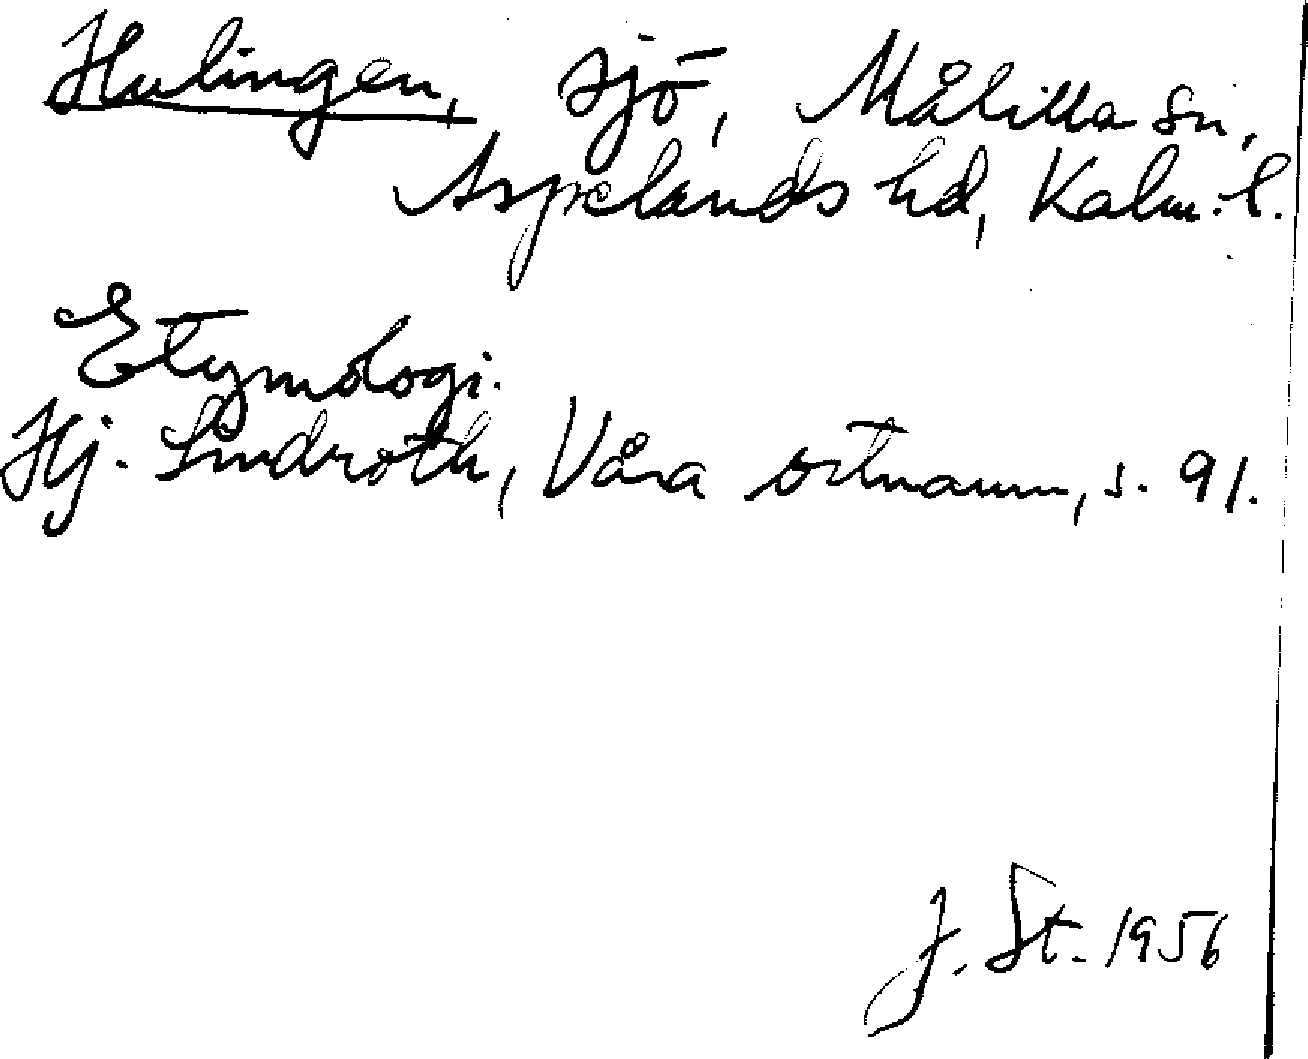 Hulingen, sjö, Målilla sn,
Aspelands hd, Kalm. l.
Etymologi.
Hj. Lindroth, Våra ortnamn, s. 91.
J. St. 1956